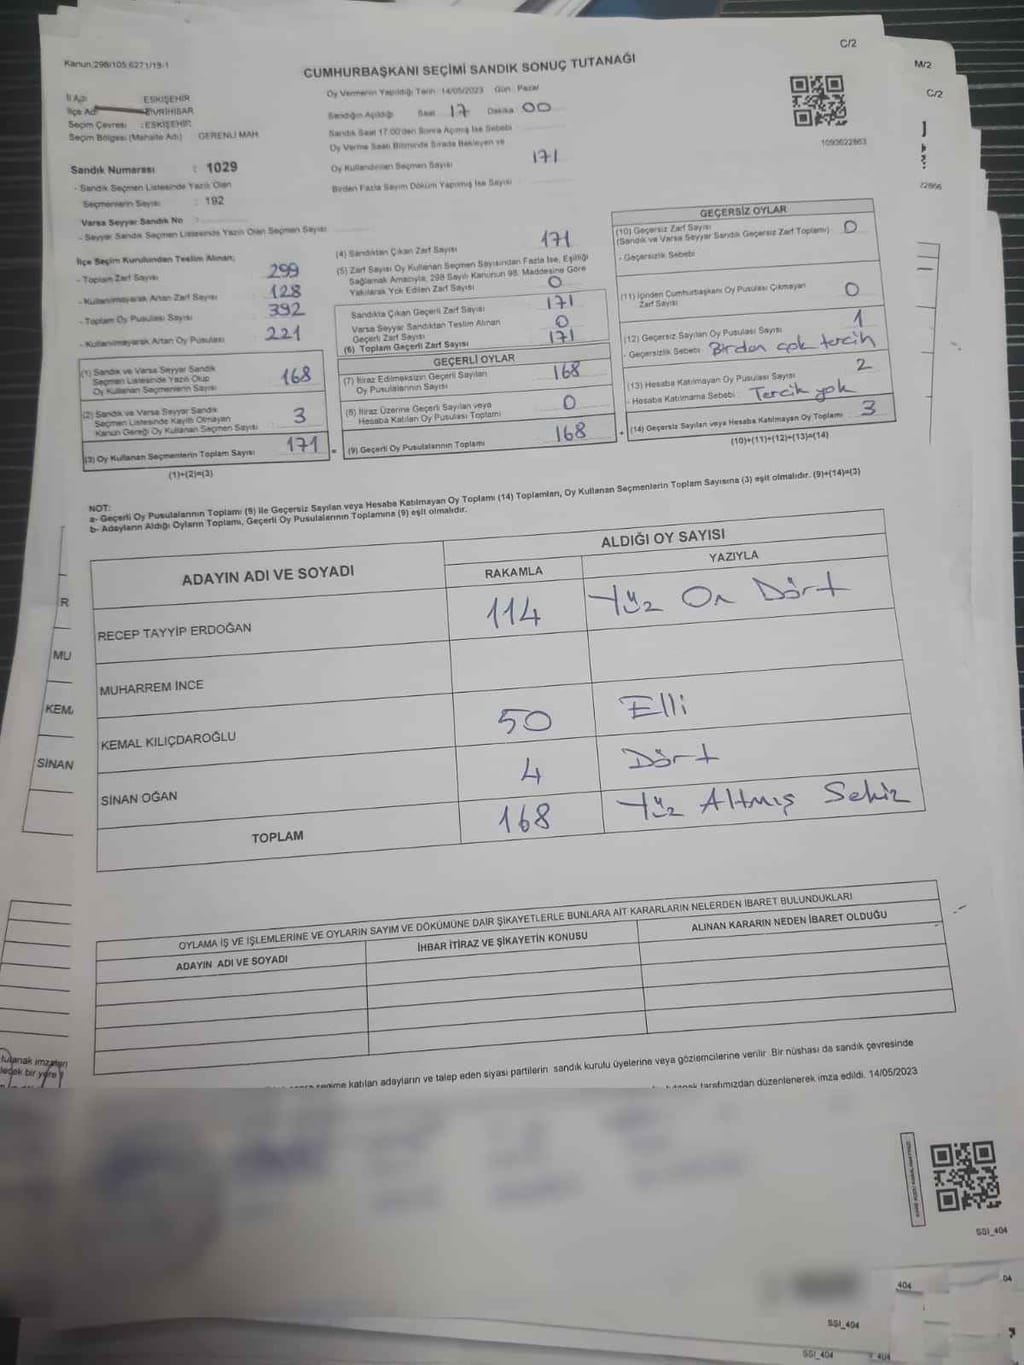 C/2
M/2
C/2
Kanun:298/105;6271/19-1
CUMHURBAŞKANI SEÇİMİ SANDIK SONUÇ TUTANAĞI
İl Adı : ESKİŞEHİR
İlçe Adı : SİVRİHİSAR
Seçim Çevresi : ESKİŞEHİR
Seçim Bölgesi (Mahalle Adı) GERENLİ MAH.
Sandık Numarası : 1029
- Sandık Seçmen Listesinde Yazılı Olan
Seçmenlerin Sayısı : 192
Varsa Seyyar Sandık No :
- Seyyar Sandık Seçmen Listesinde Yazılı Olan Seçmen Sayısı
Oy Vermenin Yapıldığı Tarih: 14/05/2023 Gün: Pazar
Sandığın Açıldığı Saat 17 Dakika 00
Sandık Saat 17:00'den Sonra Açılmış İse Sebebi
Oy Verme Saati Bitiminde Sırada Bekleyen ve
Oy Kullandırılan Seçmen Sayısı 171
Birden Fazla Sayım Döküm Yapılmış İse Sayısı
1090622863
22866
İlçe Seçim Kurulundan Teslim Alınan;
- Toplam Zarf Sayısı 299
- Kullanılmayarak Artan Zarf Sayısı 128
- Toplam Oy Pusulası Sayısı 392
- Kullanılmayarak Artan Oy Pusulası 221
(1) Sandık ve Varsa Seyyar Sandık
Seçmen Listesinde Yazılı Olup
Oy Kullanan Seçmenlerin Sayısı 168
(2) Sandık ve Varsa Seyyar Sandık
Seçmen Listesinde Kayıtlı Olmayan
Kanun Gereği Oy Kullanan Seçmen Sayısı 3
(3) Oy Kullanan Seçmenlerin Toplam Sayısı 171
(1)+(2)=(3)
(4) Sandıktan Çıkan Zarf Sayısı 171
(5) Zarf Sayısı Oy Kullanan Seçmen Sayısından Fazla İse, Eşitliği
Sağlamak Amacıyla, 298 Sayılı Kanunun 98. Maddesine Göre
Yakılarak Yok Edilen Zarf Sayısı 0
Sandıkta Çıkan Geçerli Zarf Sayısı 171
Varsa Seyyar Sandıktan Teslim Alınan
Geçerli Zarf Sayısı 0
(6) Toplam Geçerli Zarf Sayısı 171
GEÇERLİ OYLAR
(7) İtiraz Edilmeksizin Geçerli Sayılan
Oy Pusulalarının Sayısı 168
(8) İtiraz Üzerine Geçerli Sayılan veya
Hesaba Katılan Oy Pusulası Toplamı 0
(9) Geçerli Oy Pusulalarının Toplamı 168
GEÇERSİZ OYLAR
(10) Geçersiz Zarf Sayısı
(Sandık ve Varsa Seyyar Sandık Geçersiz Zarf Toplamı) 0
- Geçersizlik Sebebi
(11) İçinden Cumhurbaşkanı Oy Pusulası Çıkmayan
Zarf Sayısı 0
(12) Geçersiz Sayılan Oy Pusulası Sayısı 1
- Geçersizlik Sebebi Birden çok tercih
(13) Hesaba Katılmayan Oy Pusulası Sayısı 2
- Hesaba Katılmama Sebebi Tercik yok
(14) Geçersiz Sayılan veya Hesaba Katılmayan Oy Toplamı 3
(10)+(11)+(12)+(13)=(14)
NOT:
a- Geçerli Oy Pusulalarının Toplamı (9) ile Geçersiz Sayılan veya Hesaba Katılmayan Oy Toplamı (14) Toplamları, Oy Kullanan Seçmenlerin Toplam Sayısına (3) eşit olmalıdır. (9)+(14)=(3)
b- Adayların Aldığı Oyların Toplamı, Geçerli Oy Pusulalarının Toplamına (9) eşit olmalıdır.
ADAYIN ADI VE SOYADI
ALDIĞI OY SAYISI
RAKAMLA YAZIYLA
RECEP TAYYİP ERDOĞAN 114 Yüz On Dört
MUHARREM İNCE
KEMAL KILIÇDAROĞLU 50 Elli
SİNAN OĞAN 4 Dört
TOPLAM 168 Yüz Altmış Sekiz
R
MU
KEM
SİNAN
OYLAMA İŞ VE İŞLEMLERİNE VE OYLARIN SAYIM VE DÖKÜMÜNE DAİR ŞİKAYETLERLE BUNLARA AİT KARARLARIN NELERDEN İBARET BULUNDUKLARI
ADAYIN ADI VE SOYADI İHBAR İTİRAZ VE ŞİKAYETİN KONUSU ALINAN KARARIN NEDEN İBARET OLDUĞU
seçime katılan adayların ve talep eden siyasi partilerin sandık kurulu üyelerine veya gözlemcilerine verilir. Bir nüshası da sandık çevresinde
tarafımızdan düzenlenerek imza edildi. 14/05/2023
SSI_404
404
04
SSI_404
SSI_404
404